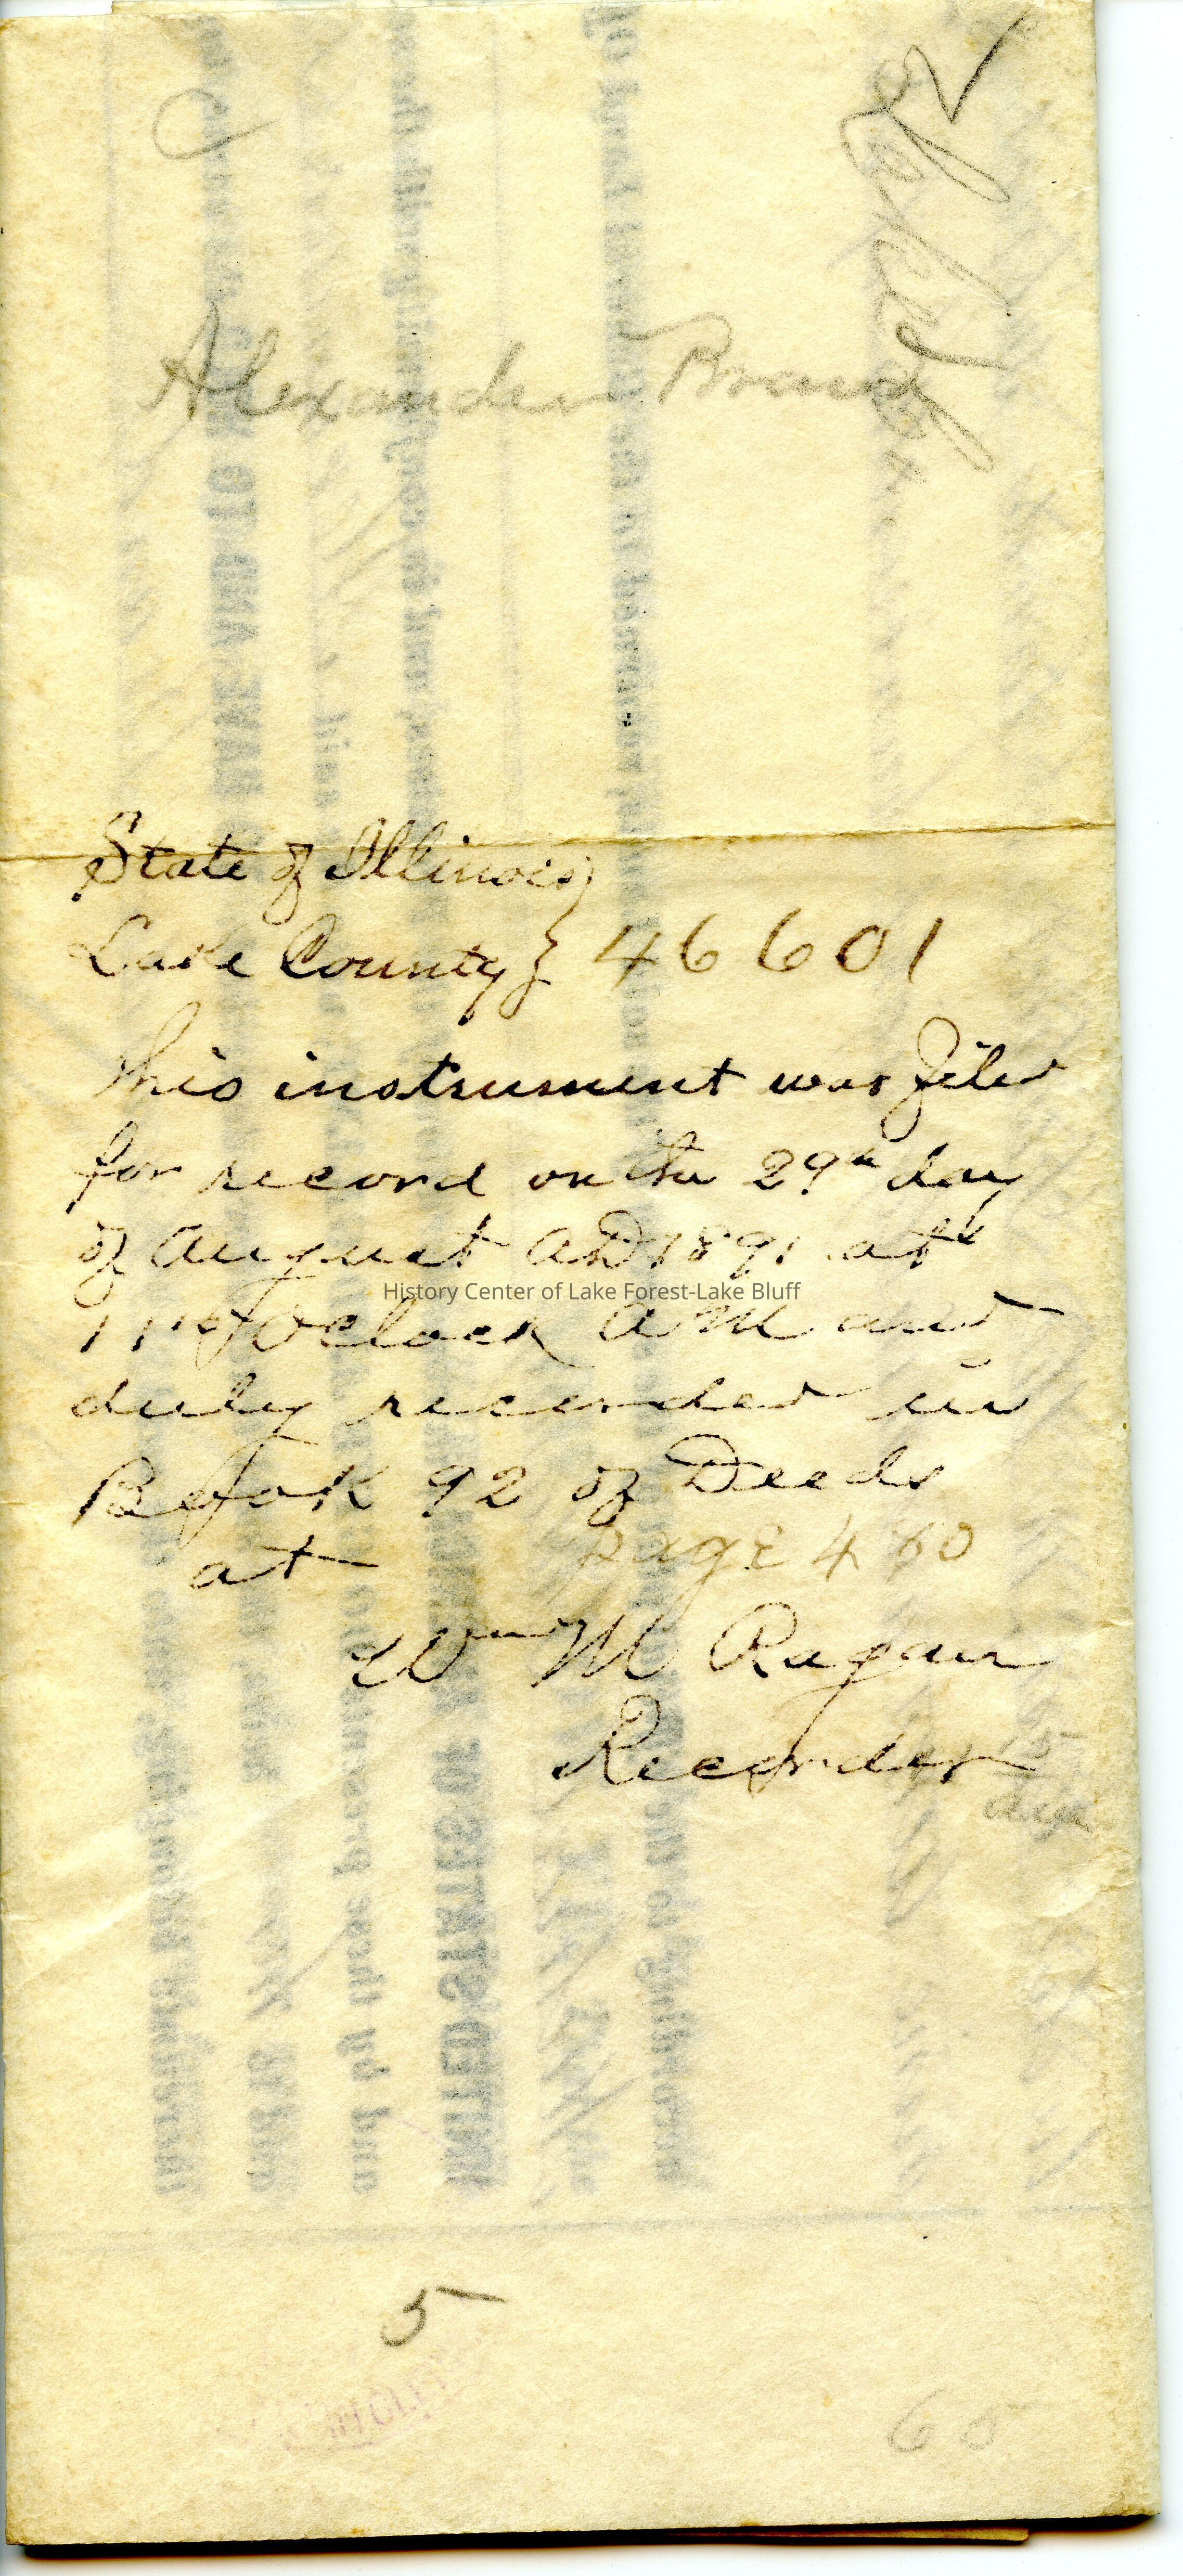 Alexander Brand
State of Illinois }
Lake County } 46601
This instrument was filed
for record on the 29th day
of August AD 1891 at
11 O'clock A M and
duly recorded in
Book 92 of Deeds
at page 480
Wm M Ragan
Recorder
15
5
60
History Center of Lake Forest-Lake Bluff